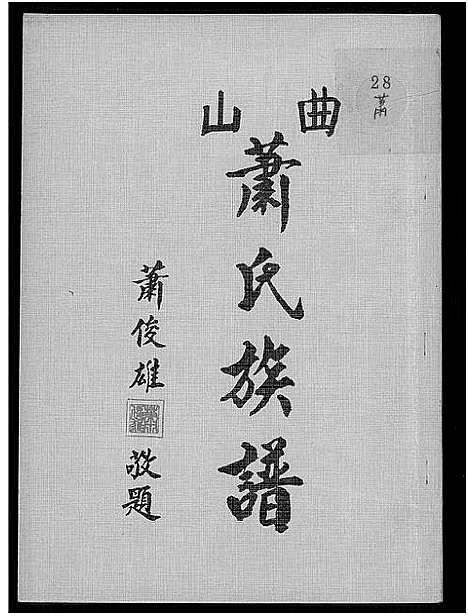 28
蕭
曲山
蕭氏族譜
蕭俊雄
敬題